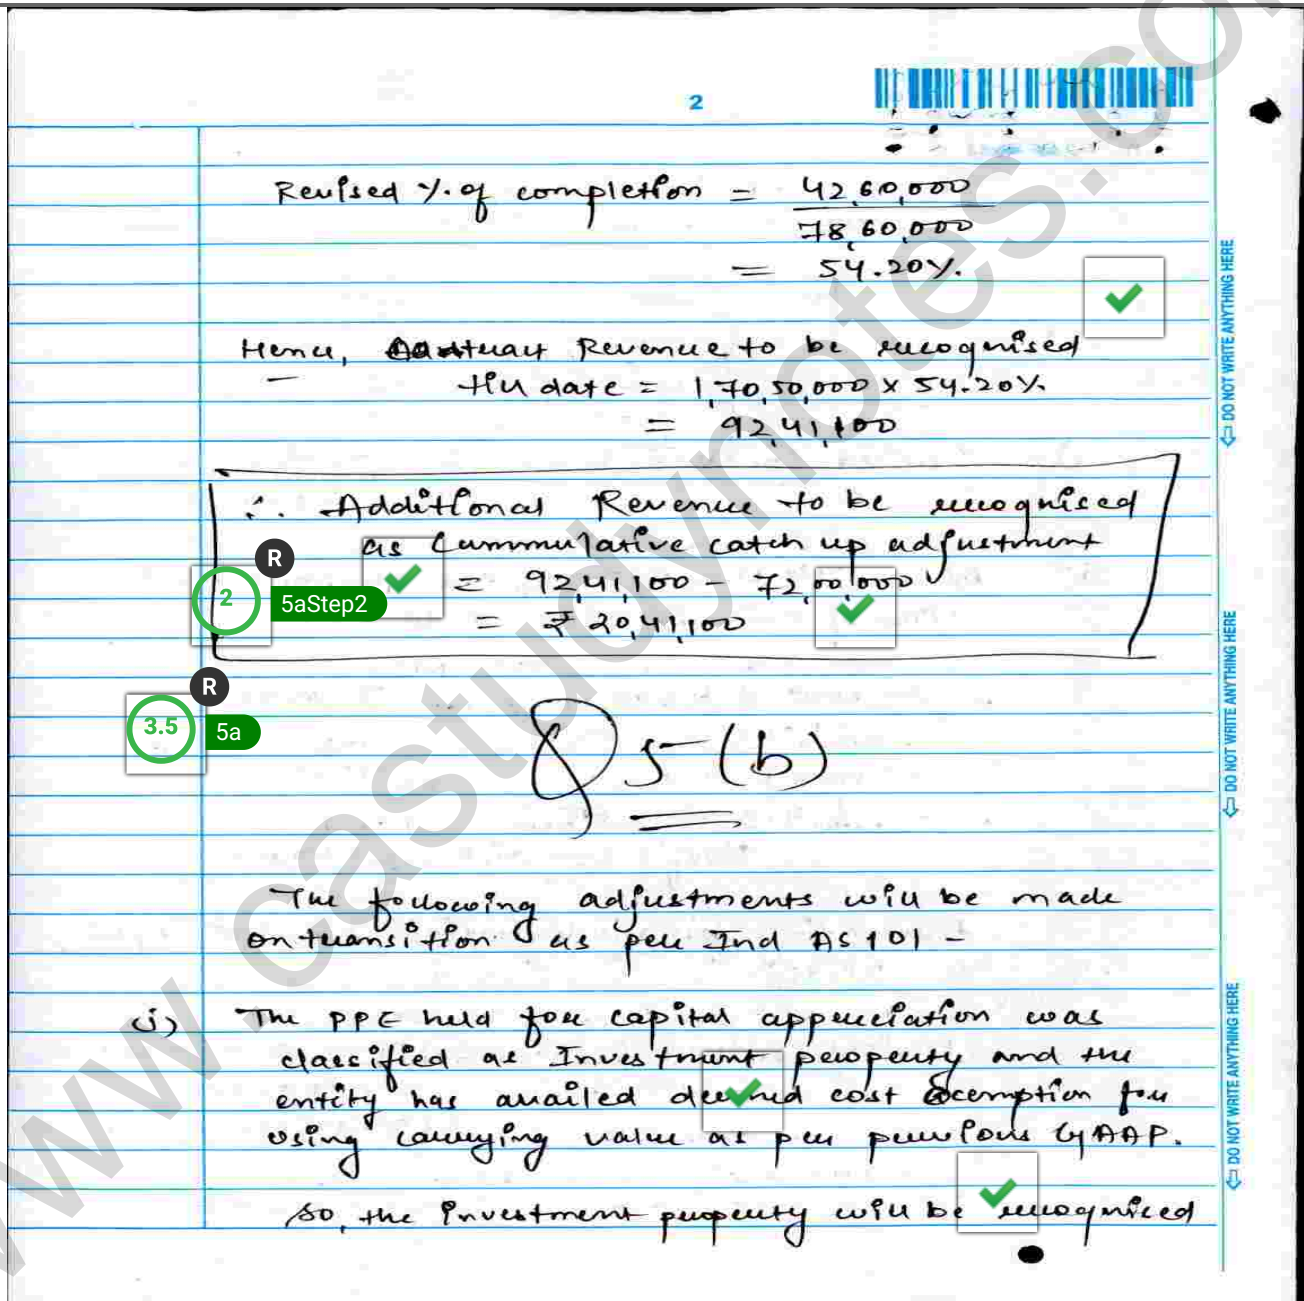 2
Revised %. of completion = 42,60,000
78,60,000
= 54.20%.
Hence, Revenue to be recognised
till date = 1,70,50,000 x 54.20%
= 92,41,100
∴ Additional Revenue to be recognised
as Cummulative catch up adjustment
= 92,41,100 - 72,00,000
= ₹ 20,41,100
R
2
5aStep2
R
3.5
5a
Q 5 (b)
The following adjustments will be made
on transition as per Ind AS 101 -
(i) The PPE held for capital appreciation was
classified as Investment property and the
entity has availed deemed cost exemption for
using carrying value as per previous GAAP.
So, the investment property will be recognised
⇦ DO NOT WRITE ANYTHING HERE
⇦ DO NOT WRITE ANYTHING HERE
⇦ DO NOT WRITE ANYTHING HERE
www.castudynotes.com